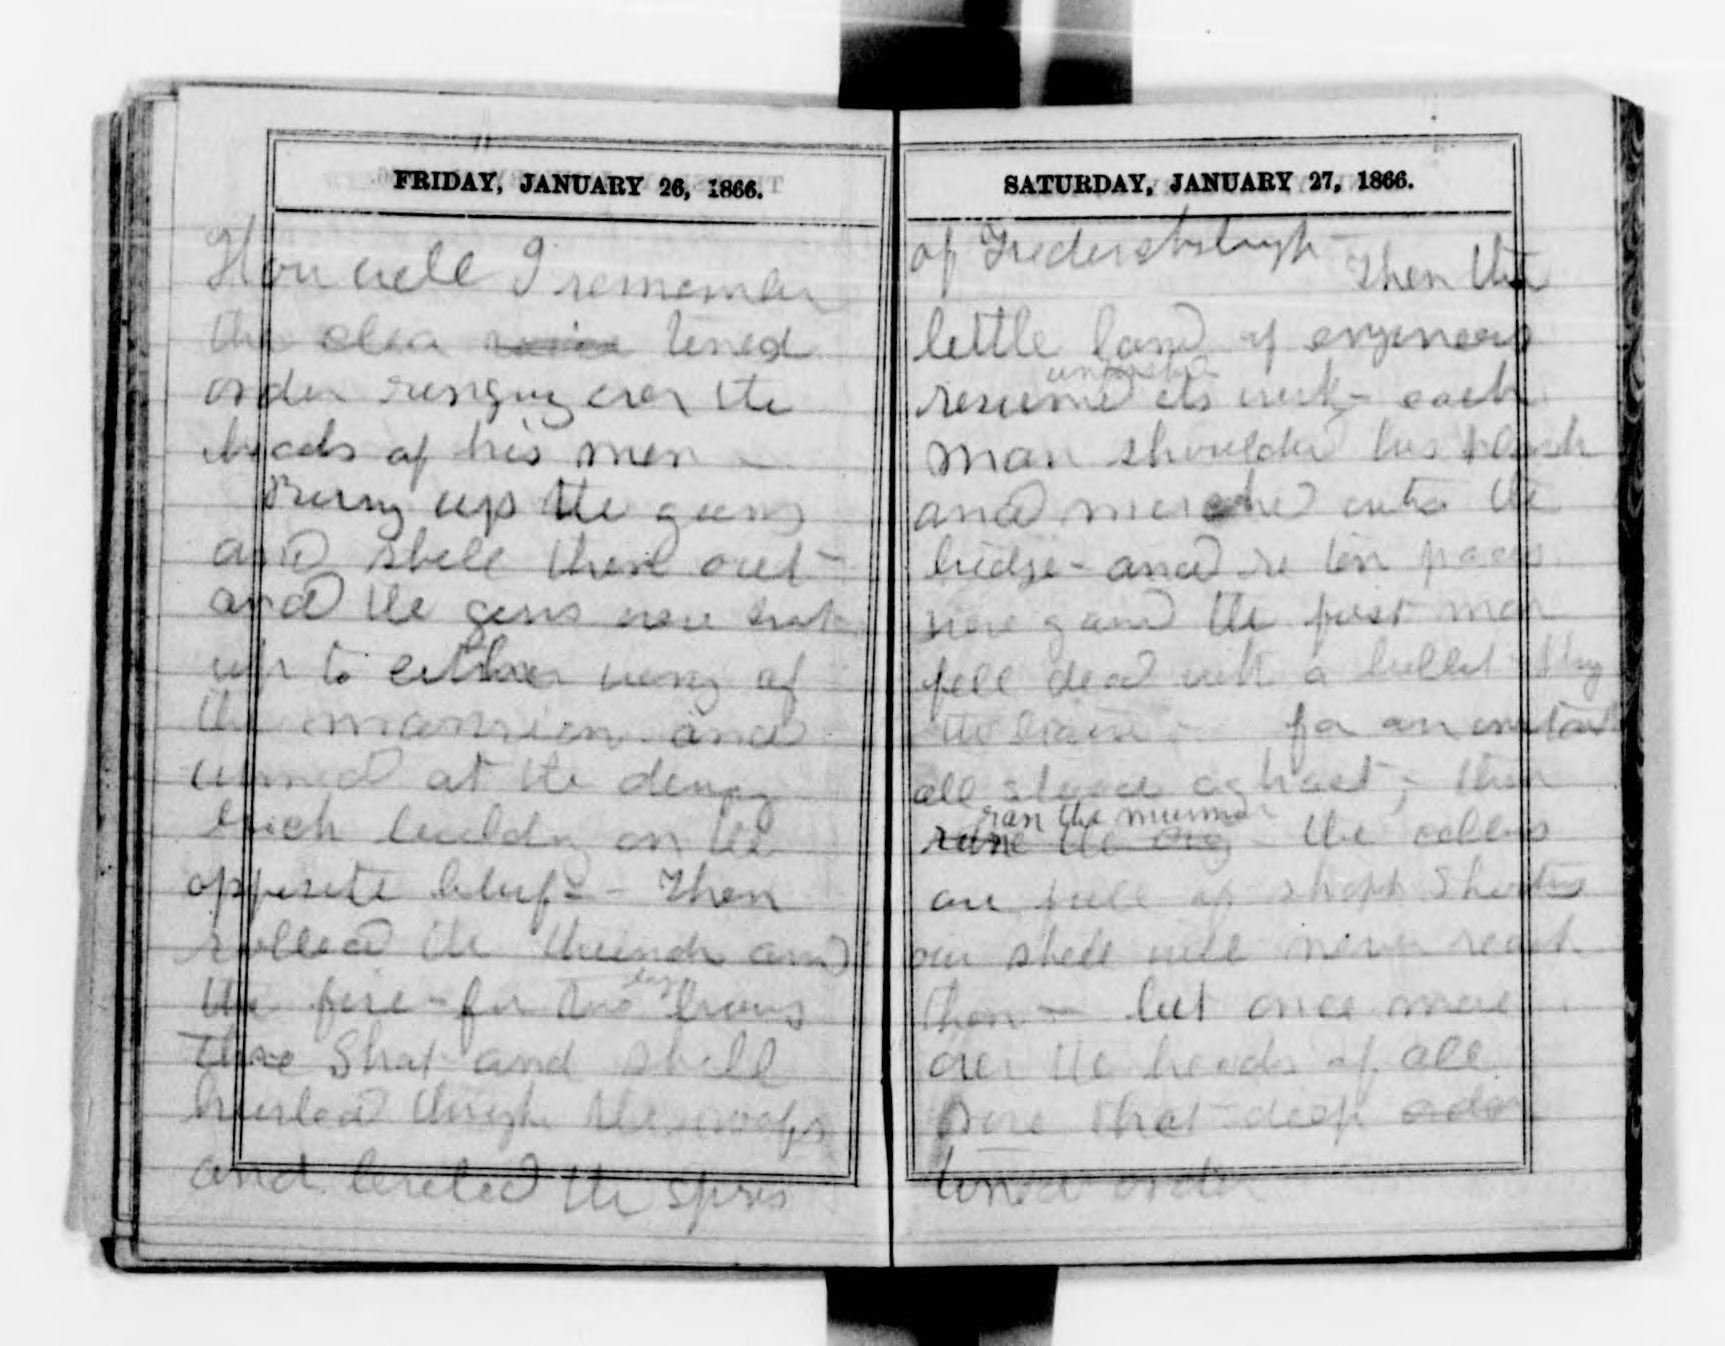 FRIDAY, JANUARY 26, 1866.
How well I remember
the clear voice toned
order ringing over the
heads of his men -
Bring up the guns
and shell them out -
and the guns were brot
up to either wing of
the mansion and
aimed at the dingy
brick building on the
opposite bluff - Then
rolled the thunder and
the fire - for two long hours
those Shot and shell
hurled through the roofs
and leveled the spires
SATURDAY, JANUARY 27, 1866.
of Fredericksburgh - Then the
little band of engineers
resumed its work - each
man shouldered his plank
and marched onto the
bridge - and ere ten paces
were gained the first man
fell dead with a bullet through
the brain - for an instant
all stood aghast, - then
ran the murmur
rose the cry - the cellars
are full of sharp Shooters
our shell will never reach
them - but once more
over the heads of all
bore that deep
toned order